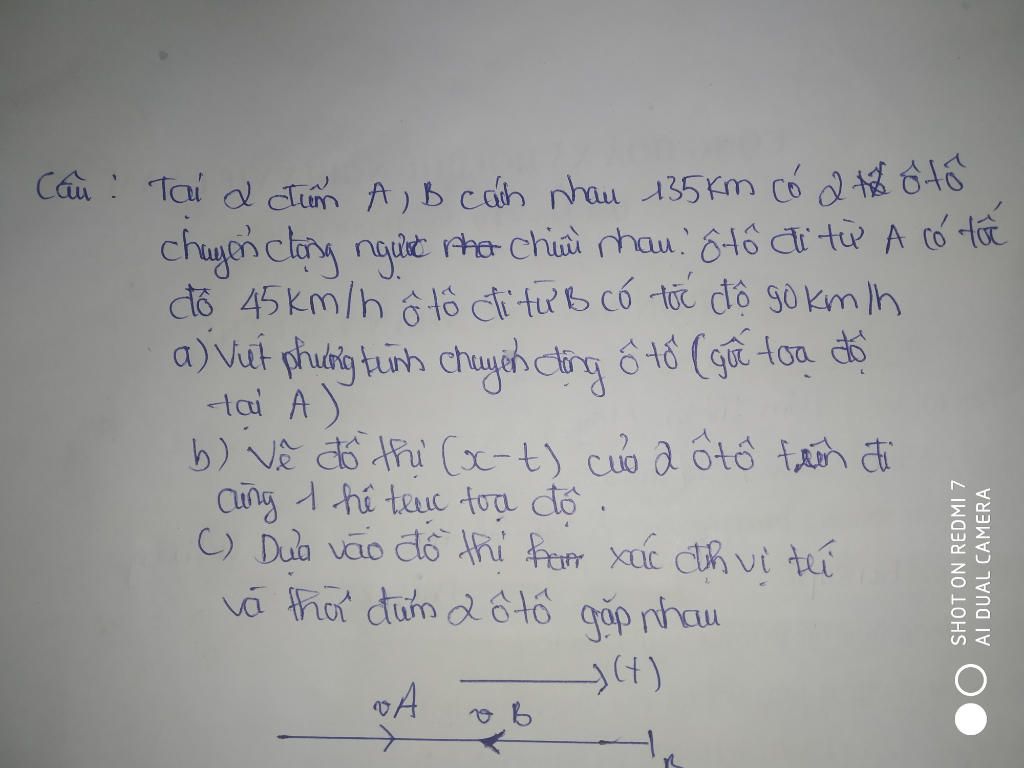 Câu: Tại 2 điểm A, B cách nhau 135km có 2 ôtô
chuyển động ngược chiều nhau: ôtô đi từ A có tốc
độ 45km/h ôtô đi từ B có tốc độ 90km/h
a) Viết phương trình chuyển động ôtô (gốc toạ độ
tại A)
b) Vẽ đồ thị (x-t) của 2 ôtô trên đi
cùng 1 hệ trục toạ độ.
c) Dựa vào đồ thị xác định vị trí
và thời điểm 2 ôtô gặp nhau
(+)
vA vB
B
SHOT ON REDMI 7
AI DUAL CAMERA